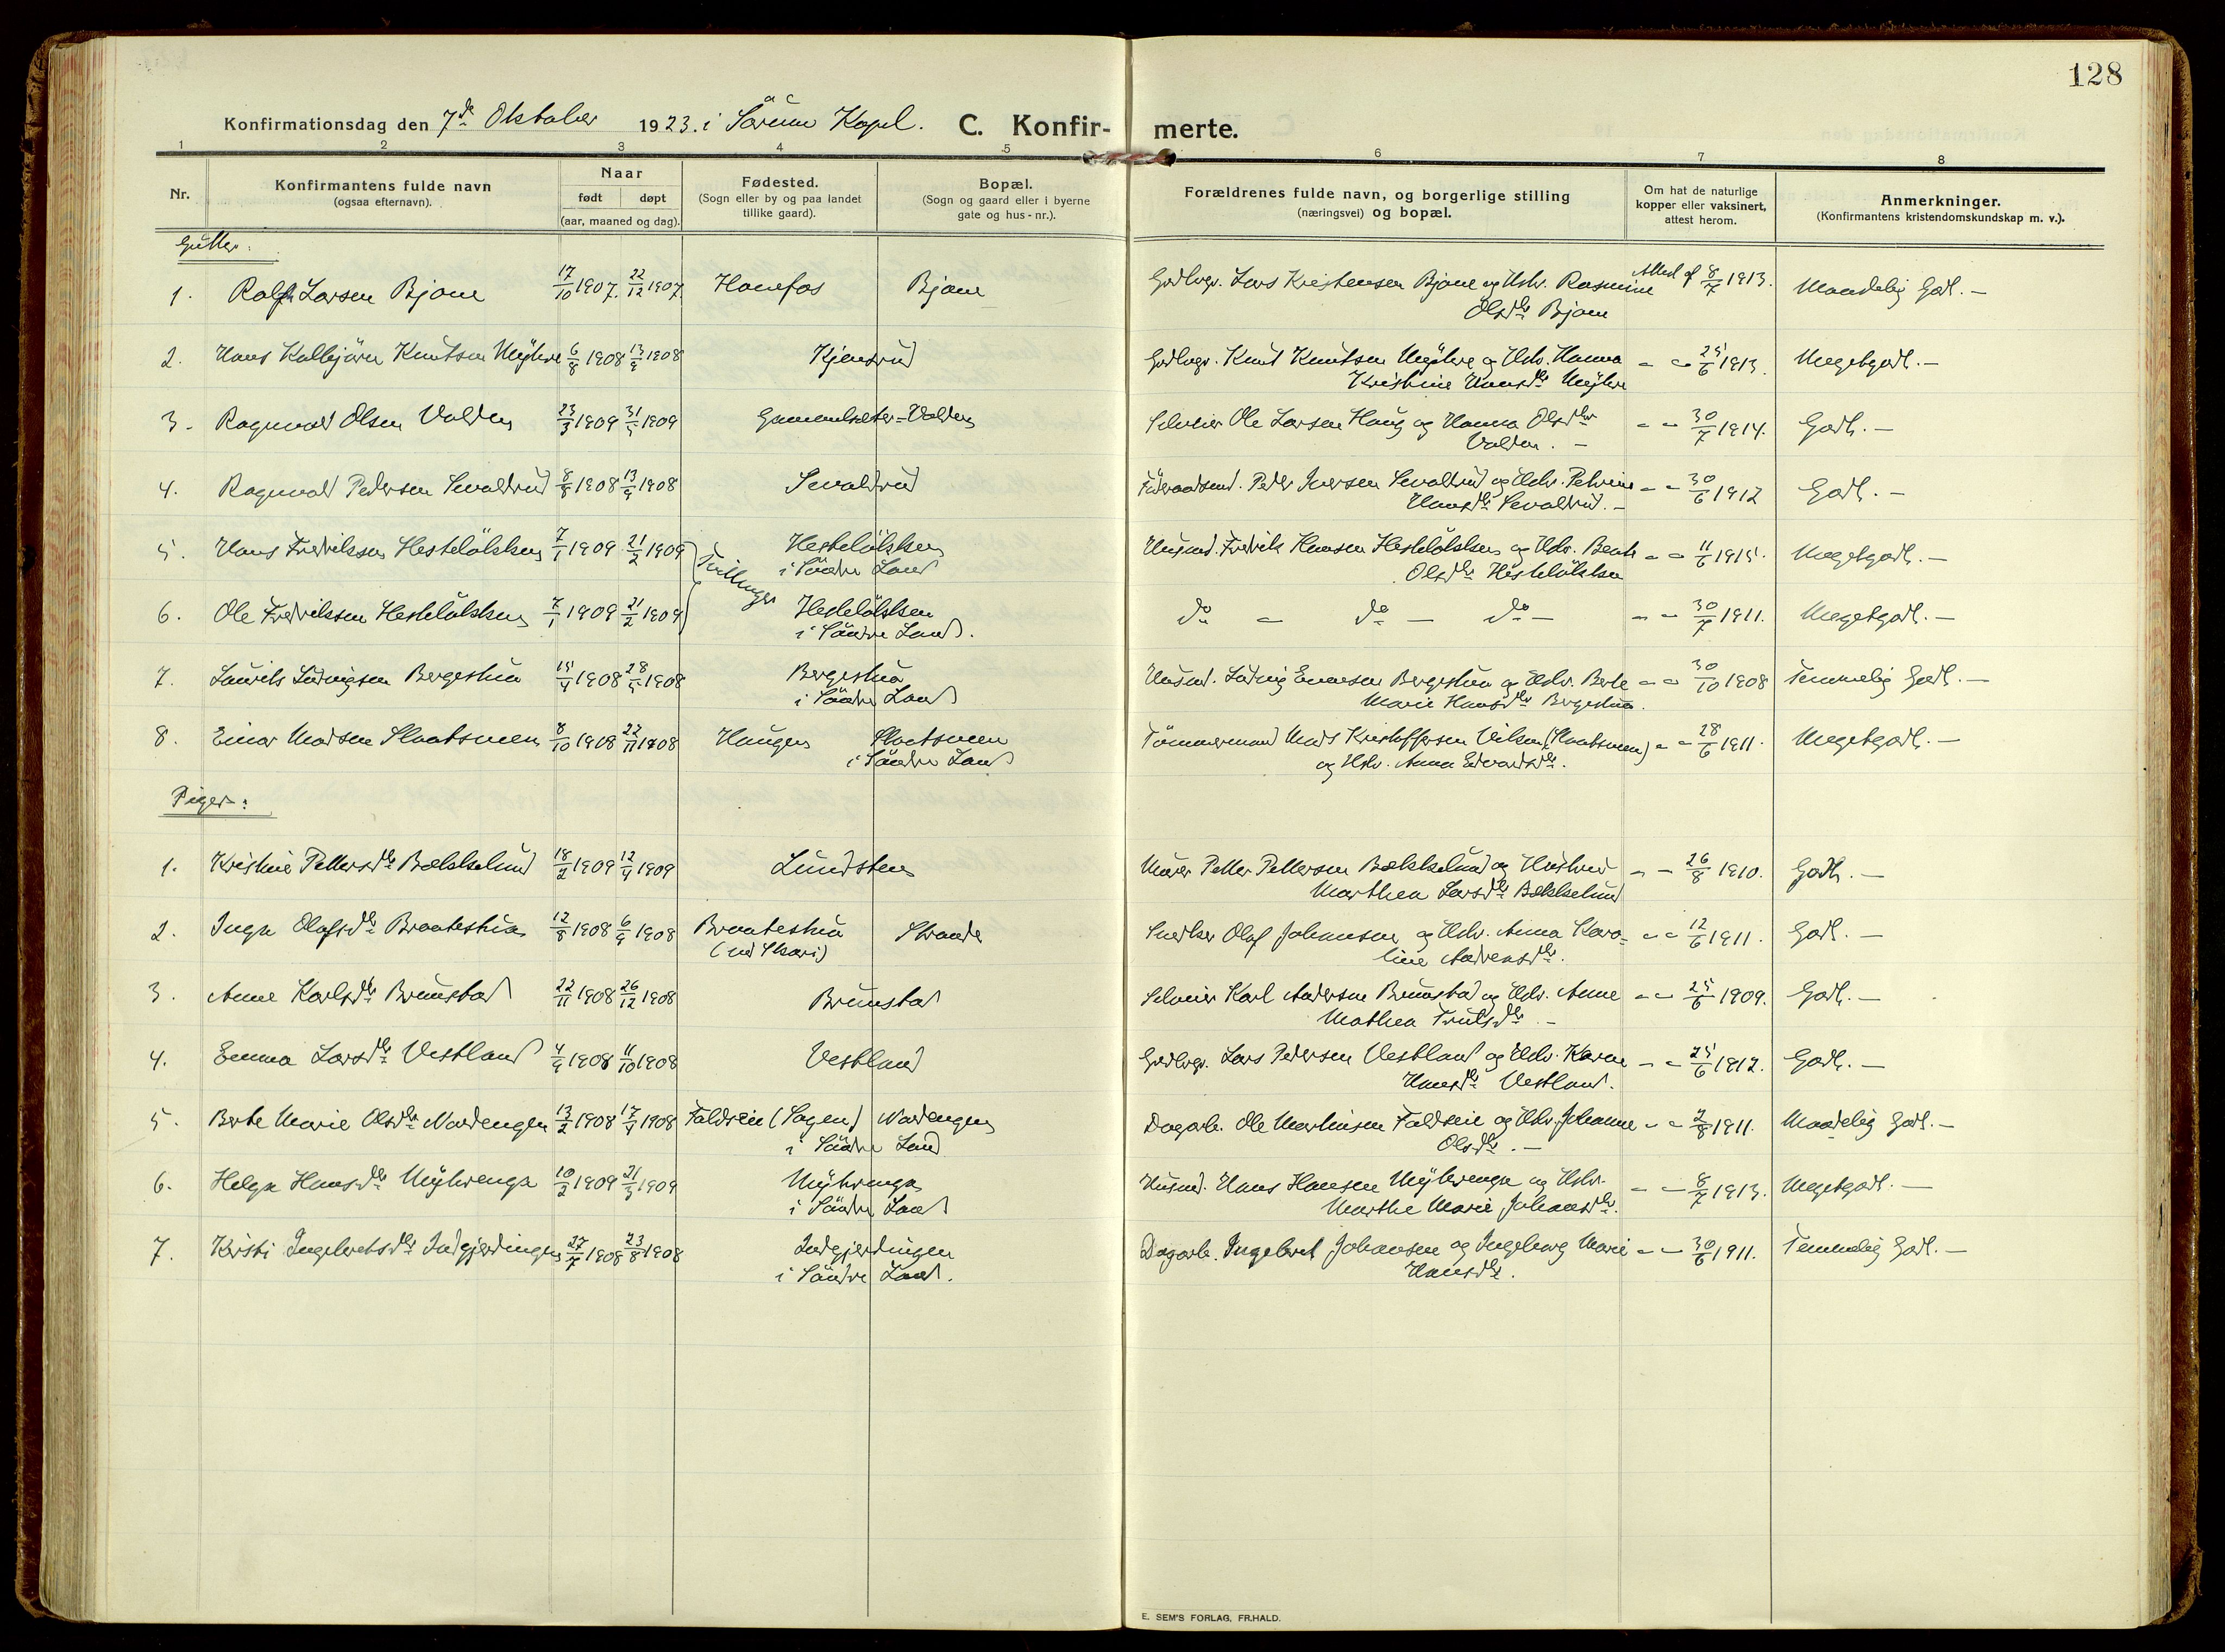 128
Konfirmationsdag den 7de Oktober 1923. i Sørum Kapel. C. Konfir- merte.
1 2 3 4 5 6 7 8
Nr.
Konfirmantens fulde navn
(ogsaa efternavn).
Naar
født døpt
(aar, maaned og dag).
Fødested.
(Sogn eller by og paa landet
tillike gaard).
Bopæl.
(Sogn og gaard eller i byerne
gate og hus-nr.).
Forældrenes fulde navn, og borgerlige stilling
(næringsvei) og bopæl.
Om hat de naturlige
kopper eller vaksinert,
attest herom.
Anmerkninger.
(Konfirmantens kristendomskundskap m. v.).
Gutter:
1. Rolf Larsen Bjone 17/10 1907. 22/12 1907. Hønefos Bjone Gardbrgr. Lars Kristensen Bjone og Hstr. Rasmine Attest af 8/7 1913. Maadelig Godt. –
Olsdtr Bjone
2. Hans Kolbjørn Knutsen Myhre 6/8 1908 13/9 1908 Kjensrud Gardbrgr. Knut Knutsen Myhre og Hstr. Hanna – – 25/6 1913. Megetgodt. –
Kristine Hansdtr Myhre
3. Ragnvald Olsen Volden 23/3 1909 31/5 1909 Gammelsæter-Volden Selveier Ole Larsen Haug og Hanna Olsdtr – – 30/7 1914. Godt. –
Volden. –
4. Ragnvald Pedersen Sevaldrud 8/8 1908 13/9 1908 Sevaldrud Føderaadsmd. Peder Iversen Sevaldrud og Hstr. Petrine – – 30/6 1912 Godt. –
Hansdtr Sevaldrud. –
5. Hans Fredriksen Hesteløkken 7/1 1909 21/2 1909 Tvillinger Hesteløkken Husmd. Fredrik Hansen Hesteløkken og Hstr. Beate – – 11/6 1915. Megetgodt. –
i Søndre Land Olsdtr Hesteløkken
6. Ole Fredriksen Hesteløkken 7/1 1909 21/2 1909 Hesteløkken do – do – do – – – 30/7 1911. Megetgodt. –
i Søndre Land.
7. Laurits Ludvigsen Bergestua 15/4 1908 28/5 1908 Bergestua Husmd. Ludvig Evensen Bergestua og Hstr. Berte – – 30/10 1908 Temmelig Godt. –
i Søndre Land Marie Hansdtr Bergestua.
8. Einar Madsen Slaatsveen 8/10 1908 22/11 1908 Haugen Slaatsveen Tømmermand Mads Kristoffersen (Slaatsveen) – – 28/6 1911. Megetgodt. –
i Søndre Land og Hstr. Anna Edvardsdtr.
Piger:
1. Kristine Pettersdtr Bækkelund 18/2 1909 12/4 1909 Lundsten Murer Petter Pettersen Bækkelund og Hustru – – 26/8 1910. Godt. –
Marthea Larsdtr Bækkelund
2. Inga Olafsdtr Braatestua 12/8 1908 6/9 1908 Braatestua Strande Snedker Olaf Johansen og Hstr. Anna Karo- – – 12/6 1911. Godt. –
(ved Skari) line Andreasdtr.
3. Anne Karlsdtr Brunstad 22/11 1908 26/12 1908 Brunstad Selveier Karl Andersen Brunstad og Hstr. Anne – – 25/6 1909. Godt. –
Mathea Trulsdtr. –
4. Emma Larsdtr Vestland 4/9 1908 11/10 1908 Vestland Gardbrgr. Lars Pedersen Vestland og Hstr. Karen – – 25/6 1912. Godt. –
Hansdtr Vestland.
5. Berte Marie Olsdtr Nordengen 13/2 1908 17/4 1908 Faldseie (Sagen) Nordengen Dagarb. Ole Martinsen Faldseie og Hstr. Johanne – – 2/8 1911. Maadelig Godt. –
i Søndre Land Olsdtr. –
6. Helga Hansdtr Myhrenga 10/2 1909 21/3 1909 Myhrenga Husmd. Hans Hansen Myhrenga og Hstr. – – 8/7 1913. Megetgodt. –
i Søndre Land Marthe Marie Johansdtr.
7. Kristi Ingebretsdtr Indgjerdingen 27/7 1908 23/8 1908 Indgjerdingen Dagarb. Ingebret Johansen og Ingeborg Marie – – 30/6 1911. Temmelig Godt. –
i Søndre Land. Hansdtr.
E. SEM'S FORLAG, FR.HALD.